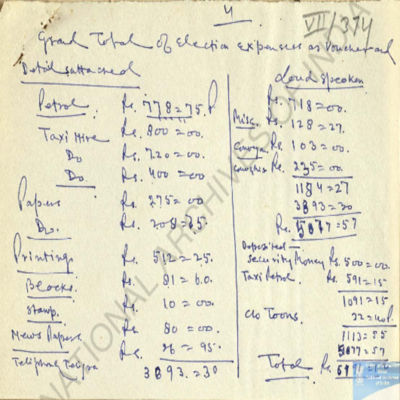 4
VII/374
Grand Total of Election expenses as Voucher and
Detail attached
Petrol Rs. 778=75.P
Taxi Hire Rs. 800=00.
Do Rs. 720=00.
Do. Rs. 400=00
Papers Rs. 275=00
Do. Rs. 208=25.
Printing Rs. 512=25.
Blocks. Rs. 81=60.
Stamp. Rs. 10=00
News Papers Rs. 80=00.
Teliphone Rs. 26=95.
3893=30
Loud Speaker
Rs. 718=00.
Misc. Rs. 128=27.
Rs. 103=00.
Rs. 235=00
1184=27
3893=30
Rs. 5077=57
Deposited
Security Money Rs. 500=00.
Taxi Petrol Rs. 591=15
1091=15
Cartoons 22=40P.
1113=55
5077=57
Total Rs.
NATIONAL ARCHIVES OF INDIA